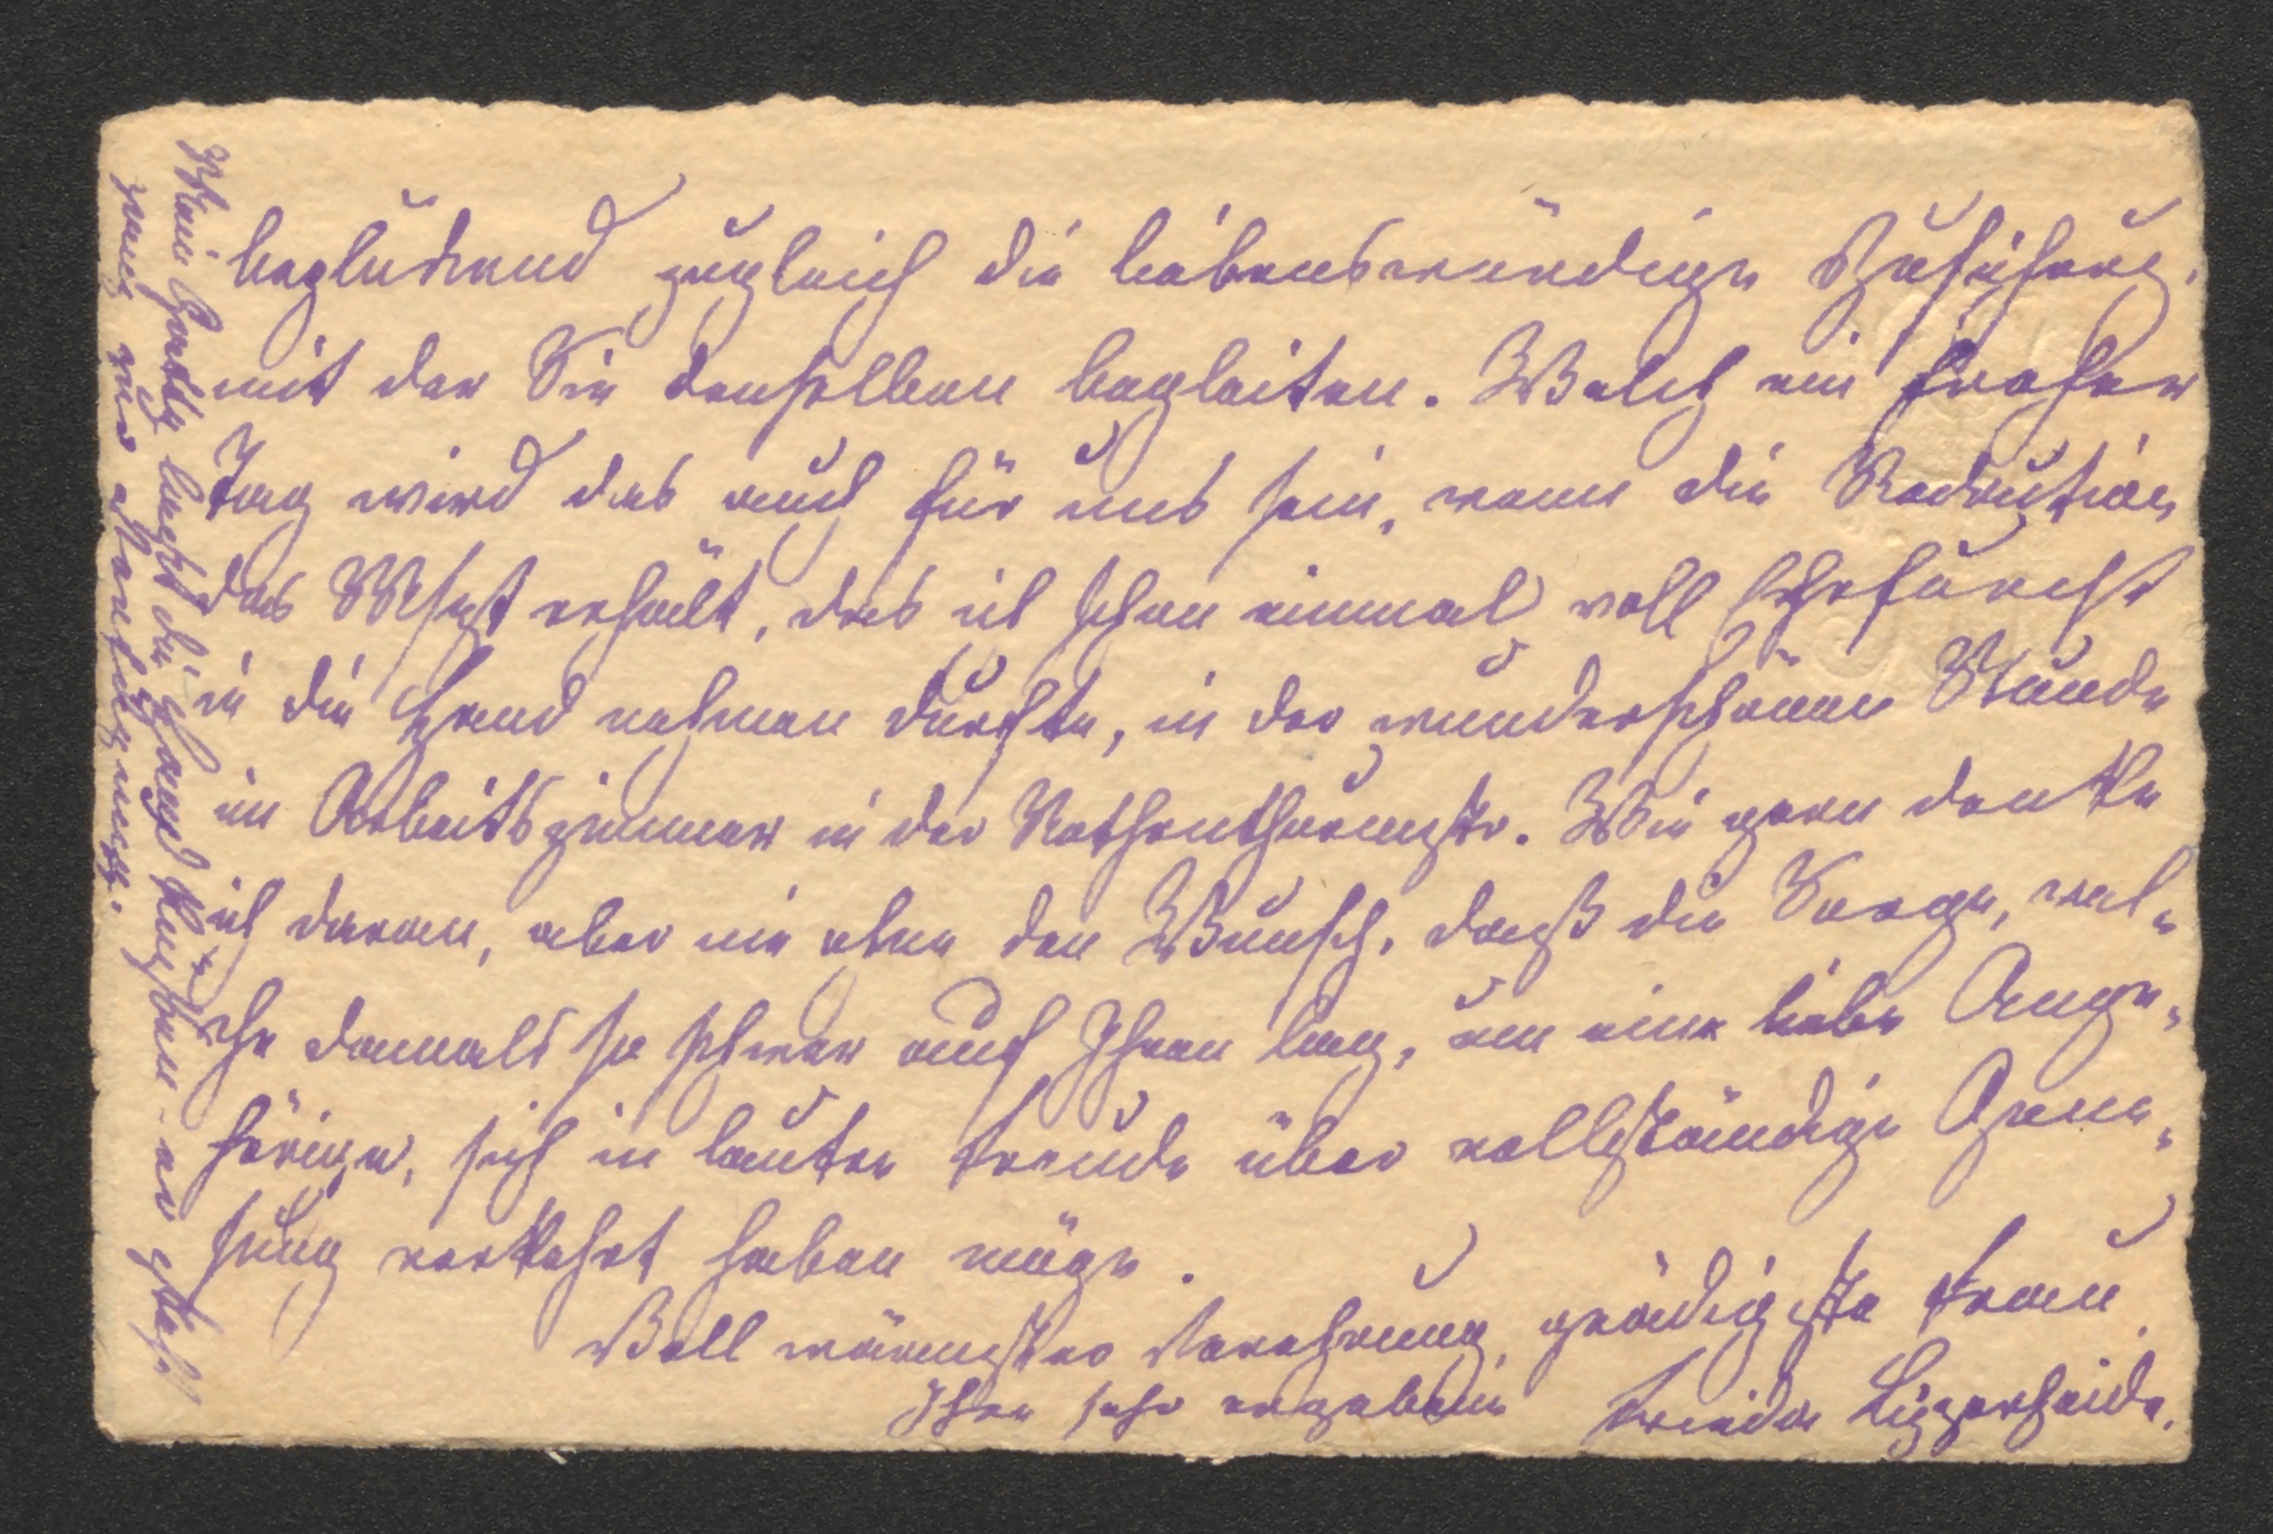 beglückend zugleich die liebenswürdige Zusicherg,
mit der Sie denselben begleiten. Welch ein froher
Tag wird das auch für uns sein, wenn die Redaction
das Mscpt erhält, das ich schon einmal voll Ehrfurcht
in die Hand nehmen durfte, in der wunderschönen Stunde
im Arbeitszimmer in der Rothenthurmstr. Wie gern denke
ich daran, aber nie ohne den Wunsch, daß die Sorge, wel-
che damals so schwer auf Ihnen lag, um eine liebe Ange-
hörige, sich in lauter Freude über vollständige Gene-
sung verkehrt haben möge.
Voll wärmster Verehrung, gnädigste Frau,
Ihre sehr ergebene Frieda Lipperheide.
Mein Gatte läßt die Hand küssen er ist
ganz